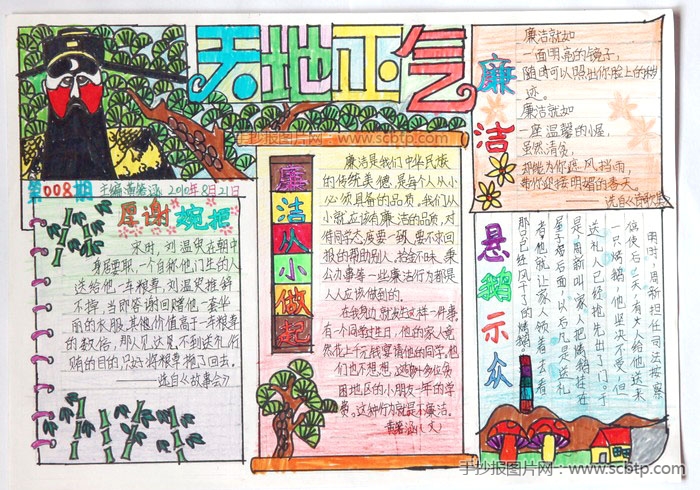 天地正气
第008期
2010年8月21日
厚谢婉拒
宋时,刘温叟在朝中
身居要职,一个自称他门生的人
送给他一车粮草,刘温叟推辞
不掉,当即答谢回赠他一套华
丽的衣服,其他价值高于一车粮草
的数倍,那人见达不到送礼行
贿的目的只好将粮草拖了回去。
——选自《故事会》
廉洁从小做起
廉洁是我们中华民族
的传统美德,是每个人从小
必须具备的品质。我们从
小就应该有廉洁的品质,对
待同学态度要一致,要不求回
报的帮助别人,拾金不昧、秉
公办事等一些廉洁行为都是
人人应该做到的。
在我身边就发生这样一件事,
有一个同学过生日,他的家人竟
然花上千元钱宴请他的同学,他
们也不想想,这些钱十多位贫
困地区的小朋友一年的学
费。这种行为就是不廉洁。
(文)
廉洁
廉洁就如
一面明亮的镜子,
随时可以照出你脸上的
迹。
廉洁就如
一座温馨的小屋,
虽然清贫,
却能为你遮风挡雨,
带你迎接明媚的春天。
悬鹅示众
明时,周新担任司法按察
使后,一天,有人给他送来
一只烤鹅,他坚决不受,但
送礼人已经抢先出了门。于
是,周新叫家人把烤鹅挂在
屋子后面,以后凡是送礼
者,他就让家人领着去看
那只已经风干了的烤鹅
手抄报图片网 www.scbtp.com
手抄报图片网:www.scbtp.com